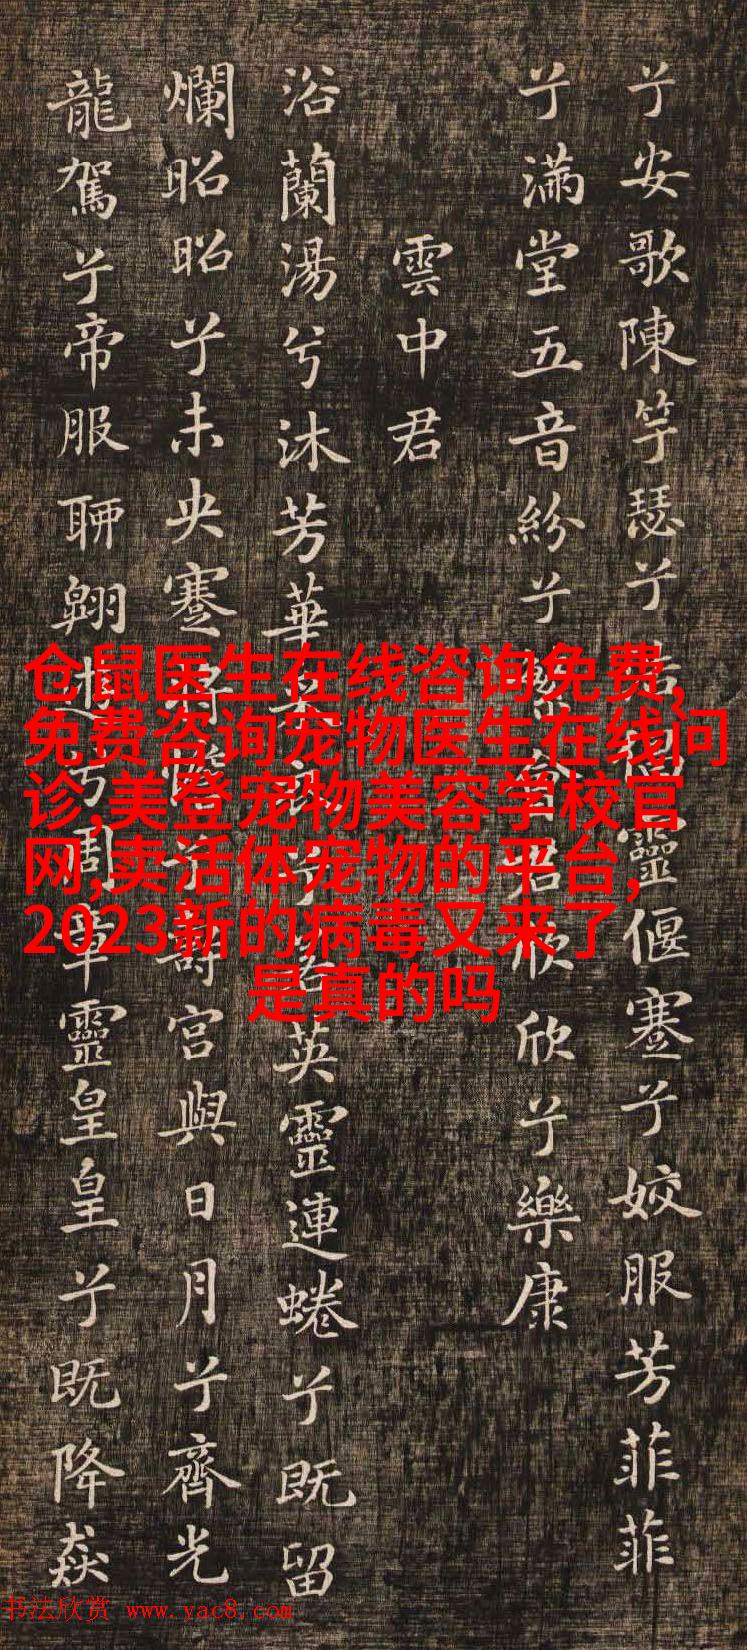 兮安歌陳竽瑟兮浩倡靈偃蹇兮姣服芳菲菲
兮滿堂五音紛兮繁會君欣欣兮樂康
雲中君
浴蘭湯兮沐芳華采衣兮若英靈連蜷兮既留
爛昭昭兮未央蹇將憺兮壽宮與日月兮齊光
龍駕兮帝服聊翱遊兮周章靈皇皇兮既降猋
仓鼠医生在线咨询免费,
免费咨询宠物医生在线问
诊,美登宠物美容学校官
网,卖活体宠物的平台,
2023新的病毒又来了
是真的吗
书法欣赏 www.yac8.com